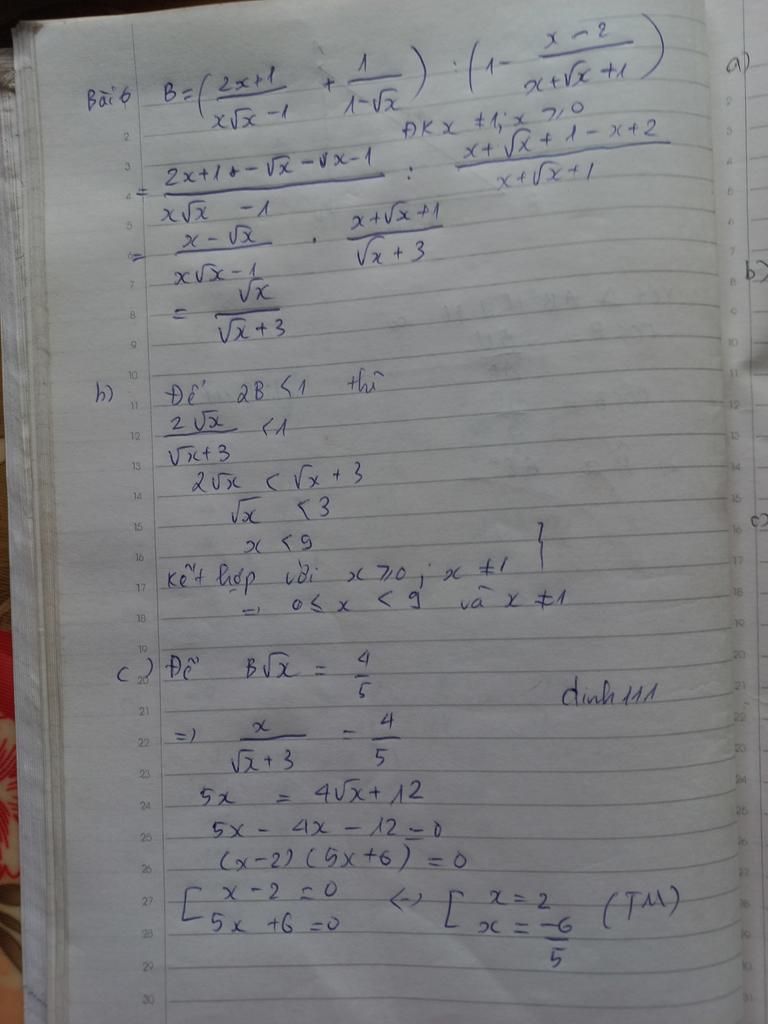 Bài 6 B = ( (2x+1)/(x√x −1) + 1/(1−√x) ) : ( 1 − (x−2)/(x+√x+1) )
ĐK x ≠ 1; x ⩾ 0
= (2x+1 + −√x −√x −1)/(x√x −1) : (x+√x+1−x+2)/(x+√x+1)
= (x−√x)/(x√x−1) . (x+√x+1)/(√x+3)
= √x/(√x+3)
b) Để 2B < 1 thì
2√x/(√x+3) < 1
2√x < √x + 3
√x < 3
x < 9
Kết hợp với x ⩾ 0 ; x ≠ 1 }
=> 0 ≤ x < 9 và x ≠ 1
c) Để B√x = 4/5
dinh 111
=> x/(√x+3) = 4/5
5x = 4√x + 12
5x − 4x − 12 = 0
(x−2)(5x+6) = 0
[ x − 2 = 0 <-> [ x = 2 (TM)
5x + 6 = 0 x = −6/5
a)
b)
c)